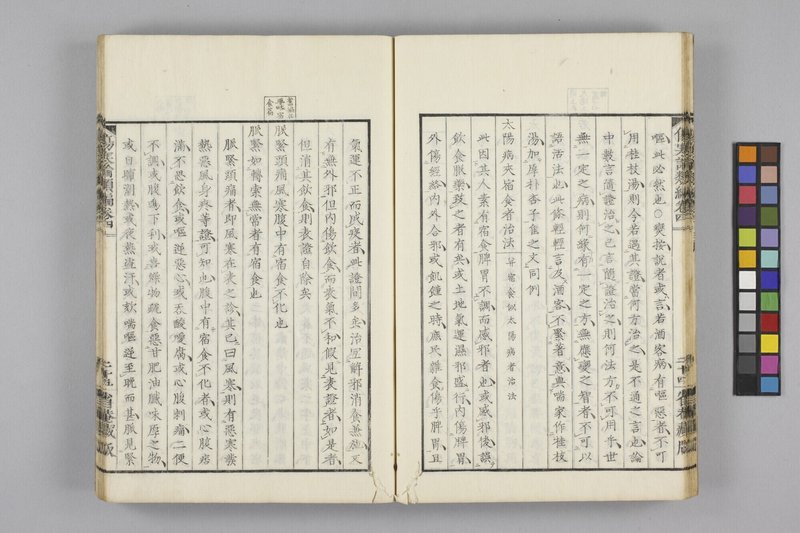 嘔此必然也○變按説者或言若酒客病有嘔惡者不可
用桂枝湯則今若遇其證當何方治之是不通之言也論
中數言隨證治之已言隨證治之則何法方不可用乎世
無一定之病則何藥有一定之方無應變之智者不可以
語活法也此條輕輕言及酒客不緊著意與喘家作桂枝
湯加厚朴杏子隹之文同例
太陽病夾宿食者治法 并宿食似太陽病者治法
此因其人素有宿食脾胃不調而感邪者也或感邪後誤
飲食脈藥致之者有焉或土地氣運濕邪盛行内傷脾胃
外傷經絡内外合邪或飢饉之時庶民雜食傷乎脾胃且
氣運不正而成疾者此證間多焉治宜解邪消食兼施又
有無外邪但内傷飲食而表氣不和假見表證者如是者
但消其飲食則表證自除矣
脈緊頭痛風寒腹中有宿食不化也
脈緊如轉索無常者有宿食也
脈緊頭痛者即風寒在表之診其已曰風寒則有惡寒發
熱惡風身疼等證可知也腹中有宿食不化者或心腹痞
滿不思飲食或嘔逆惡心或吞酸噯腐或心腹刺痛二便
不調或腹鳴下利或喜綠物疏食惡甘肥油膩味厚之物
或自汗潮熱或夜熱盜汗或欬喘嘔逆至晩而甚脈見緊
傷寒論類編卷四
二十四